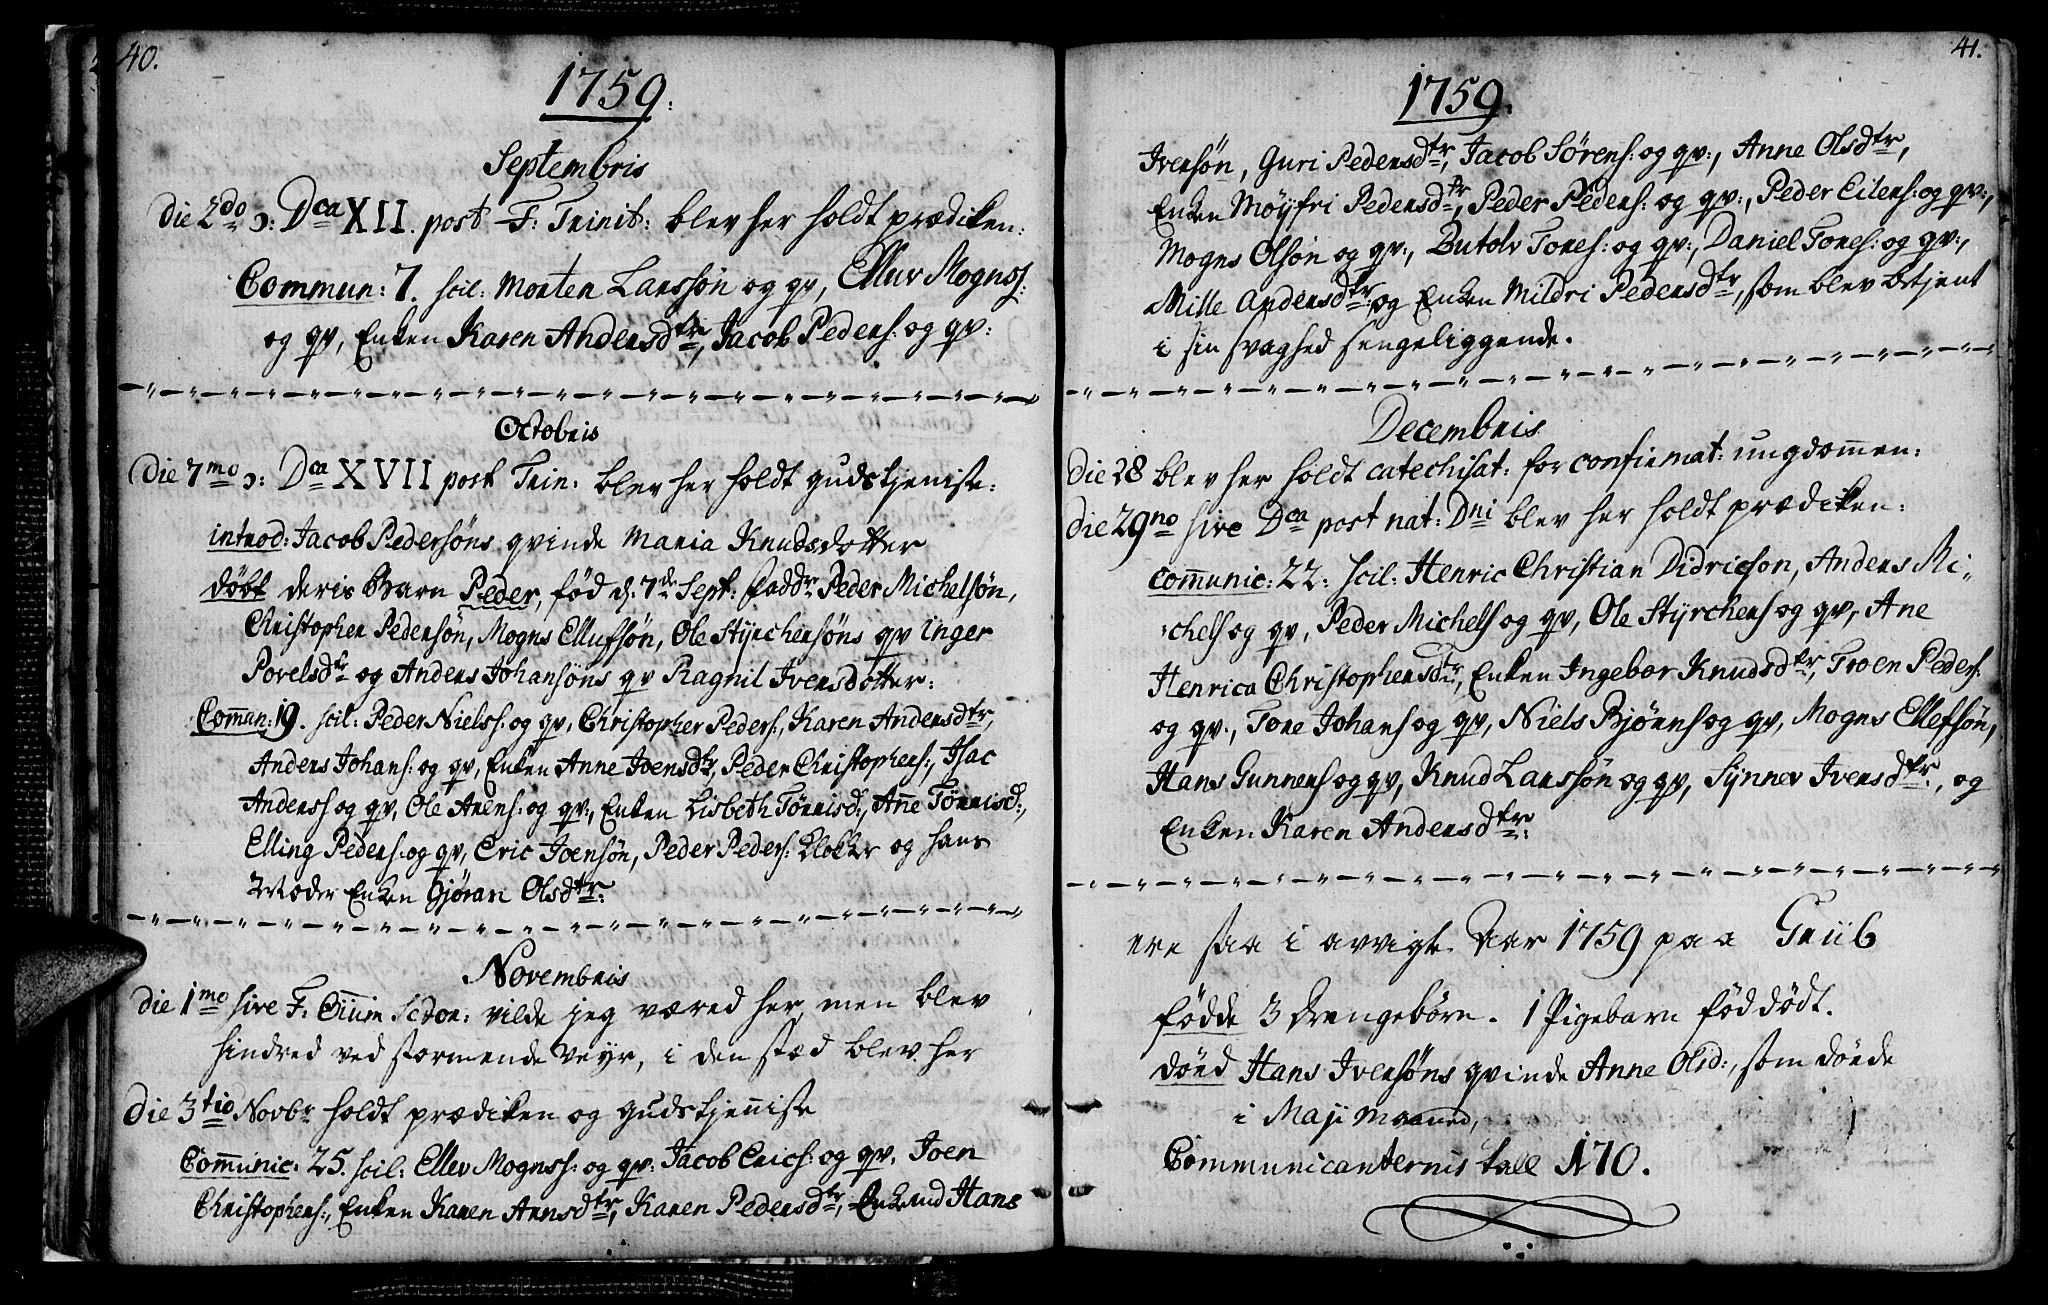 40.
1759.
Septembris
Die 2do ɔ: Dca XII. post F: Trinit: blev her holdt prædiken:
Commun: 7. scil: Morten Larssøn og qv, Ellev Mognss:
og qv, Enken Karen Andersdtr, Jacob Peders: og qv:
Octobris
Die 7mo ɔ: Dca XVII post Trin: blev her holdt gudstjeniste:
introd: Jacob Pedersøns qvinde Maria Knudsdotter
døbt deris Barn Peder, fød d. 7de Sept: Faddr Peder Michelsøn,
Christopher Pedersøn, Mogns Ellufsøn, Ole Styrchersøns qv inger
Povelsdtr og Anders Johansøns qv Ragnil Iversdotter:
Com̄un: 19. scil: Peder Nielss: og qv, Christopher Peders:, Karen Andersdtr,
Anders Johans: og qv, Enken Anne Joensdtr, Peder Christophers:, Isac
Anderss og qv, Ole Arens: og qv:, Enken Lisbeth Tønnisd:, Añe Tønnisd:,
Elling Peders: og qv, Eric Joensøn, Peder Peders: klokker og hans
Moder Enken Gjøran Olsdtr:
Novembris
Die 1mo sive F: Om̄ium Sctor: vilde jeg været her, men blev
hindred ved stormende Veyr, i den stæd blev her
Die 3tio Novbr holdt prædiken og gudstjeniste
Com̄unic: 25. scil: Ellev Mognss: og qv: Jacob Erics: og qv, Joen
Christophers:, Enken Karen Arnsdtr, Karen Pedersdtr, Hans
41.
1759.
Iversøn, Guri Pedersdtr, Jacob Sørens: og qv:, Anne Olsdtr,
Enken Møyfri Pedersdtr, Peder Peders: og qv:, Peder Eilers: og qv:,
Mogns Olsøn og qv:, Butolv Tores: og qv:, Daniel Tores: og qv:,
Mille Andersdtr: og Enken Mildri Pedersdtr, som blev betjent
i sin svaghed sengeliggende.
Decembris
Die 28 blev her holdt catechisat: for confirmat: ungdom̄en:
Die 29no sive Dca post nat: Dni blev her holdt prædiken:
Com̄unic: 22: scil: Henric Christian Didricson, Anders Mi-
chels og qv, Peder Michels og qv, Ole Styrchers og qv, Ane
Henrica Christophersdtr, Enken Ingebor Knudsdtr, Troen Peders:
og qv:, Tore Johans og qv, Niels Bjørns og qv, Mogns Ellefsøn,
Hans Gunners og qv, Knud Larssøn og qv, Synnev Iversdtr:, og
Enken Karen Andersdtr:
ere saa i avvigte Aar 1759 paa Griib
fødde 3 Drengebørn. 1 Pigebarn fød dødt.
døed Hans Iversøns qvinde Anne Olsd:, som døede
i Maji Maaned,
Communicanternis tall 170.